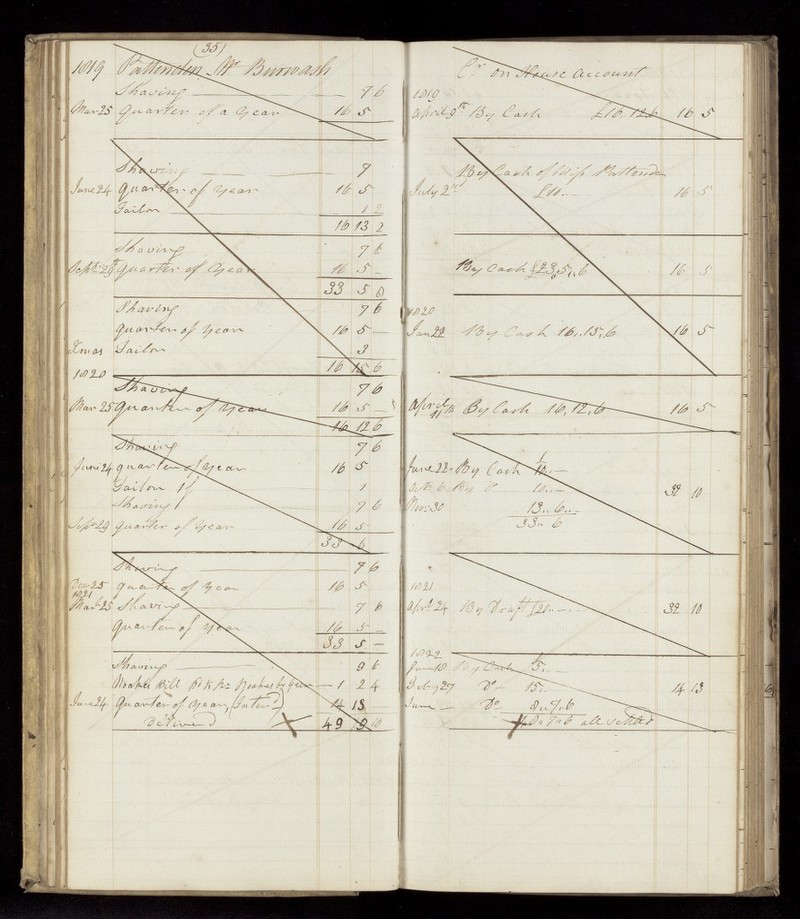 (35)
1819 Pattenden Mr Burwash
Shaving — 7 6
Mar 25 Quarter of a Year 16 5
Shaving — 7
June 24 Quarter of Year 16 5
Tailor 1 2
16 13 2
Shaving 7 6
Sept 29 quarter of Year 16 5 —
33 5 8
Shaving 7 6
quarter of Year 16 5 —
Xmas Tailor 3
16 15 6
1820
Shaving 7 6
Mar 25 Quarter of Year 16 5 —
16 12 6
Shaving 7 6
June 24 quarter of Year 16 5
Tailor 1
Shaving 7 6
Sept 29 quarter of Year 16 5
33 6
Shaving — 7 6
Dec 25 quarter of Year 16 5
1821
Mar 25 Shaving — 7 6
Quarter of Year 16 5 —
33 5 —
Shaving — 9 6
Bill — 1 2 4
June 24 Quarter of Year 14 15
Deliverd X 49 9 10
Cr on House Account
1819
April 9th By Cash £16,12,6 16 5
By Cash of Miss Pattenden
July 2nd 16 5
By Cash £23,5,,6 16 5
1820
Jan 22 By Cash 16,,15,6 16 5
April 11th By Cash 16,12,6 16 5
June 22 By Cash 10,,—
By Do 10,,— 32 10
Nov 30 13,,6,,-
33,, 6
1821
Aprl 24 By Draft £20,,— 32 10
1822
By Cash 15,,—
Do — 15,,— 14 13
June — Do 8,,7,,6
7,,6 all settled